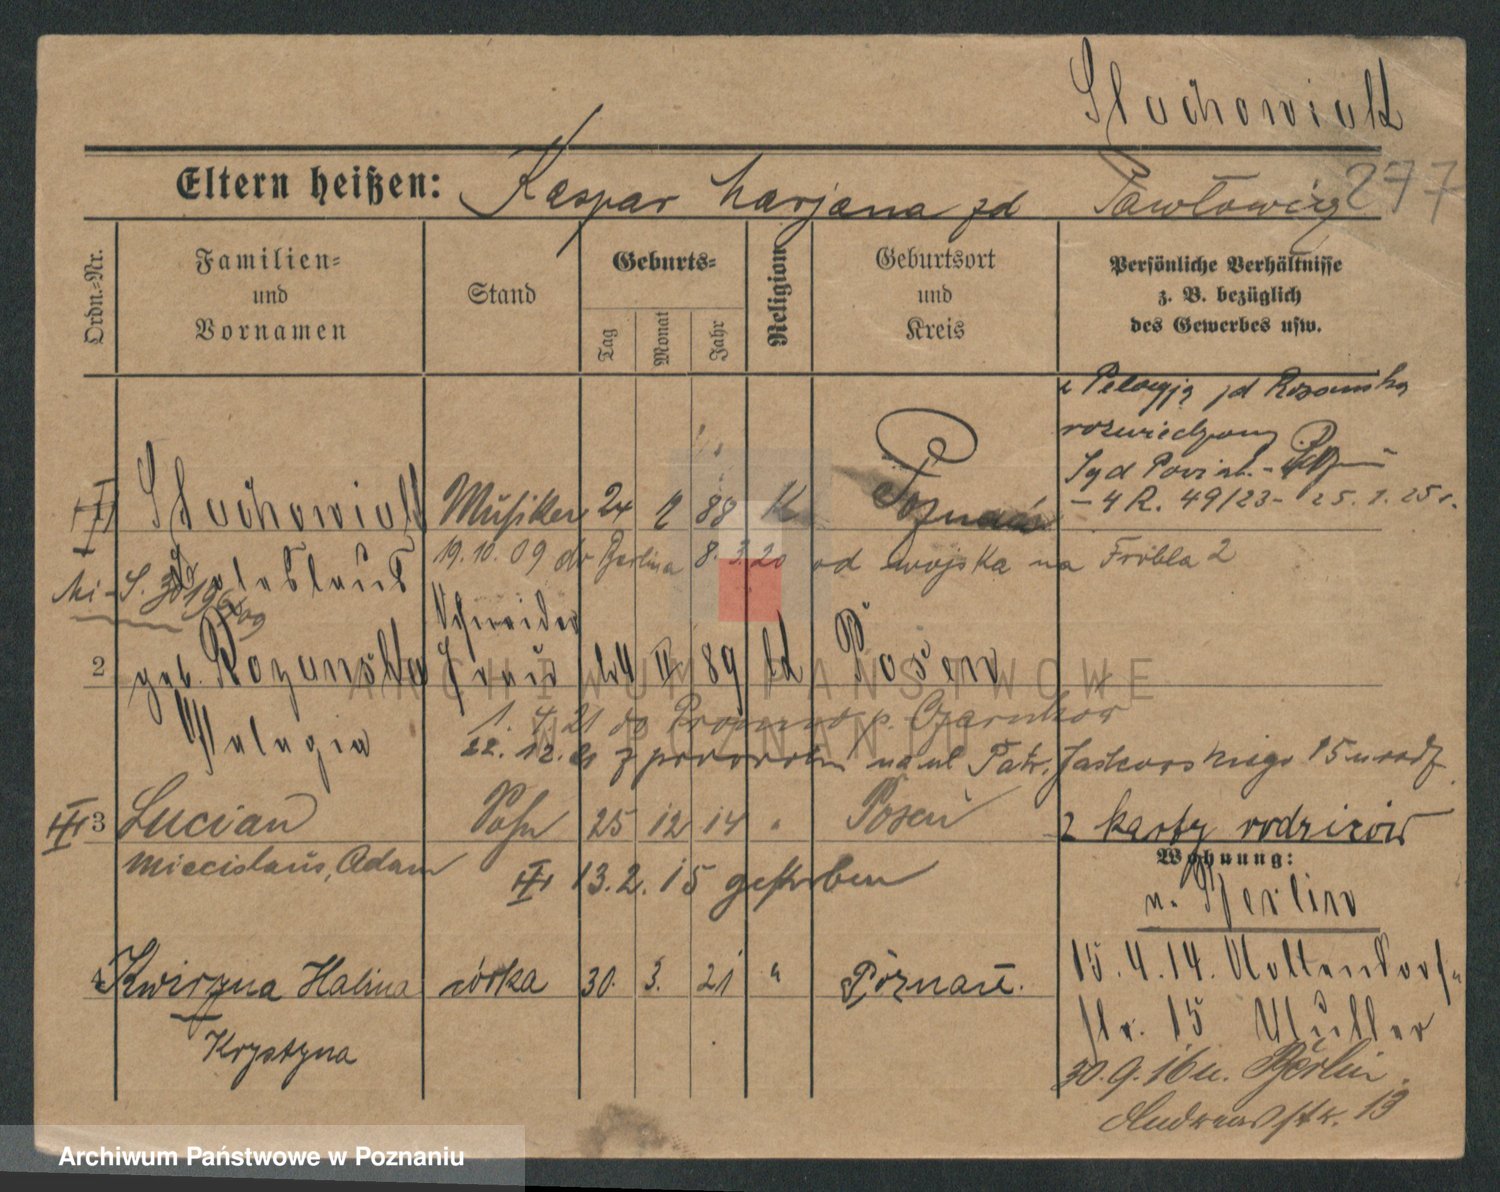 Stachowiak
Eltern heißen: Kaspar Marjana zd Pawłowicz 277
Ordn.-Nr.
Familien-
und
Vornamen
Stand
Geburts-
Tag
Monat
Jahr
Religion
Geburtsort
und
Kreis
Persönliche Verhältnisse
z. B. bezüglich
des Gewerbes usw.
z Pelagją zd
rozwiedziony
Sąd
4 R. 49/23 - 25. 1. 25 r.
Stachowiak Musiker 24 88 K Poznań
19.10.09 do Berlina 8.3.20 od wojska na 2
Schneider
2 geb. Rozanska Frau 24 II 89 kt Posen
Pelagia
1. 4. 21 do p. Czarnków
22. 12. 21 z powrotem na ul Patr. Jackowskiego 15 u rodz.
3 Lucian Sohn 25 12 14 " Posen
2 karty rodziców
Miecislaus, Adam
13. 2. 15 gestorben
Wohnung:
n. Berlin
4 Kwiryna Halina córka 30. 3. 21 " Poznań.
Krystyna
15. 4. 14. Nollendorf-
str. 15 Müller
30. 9. 16 n. Berlin
Andreasstr. 13
ARCHIWUM PAŃSTWOWE
W POZNANIU
Archiwum Państwowe w Poznaniu